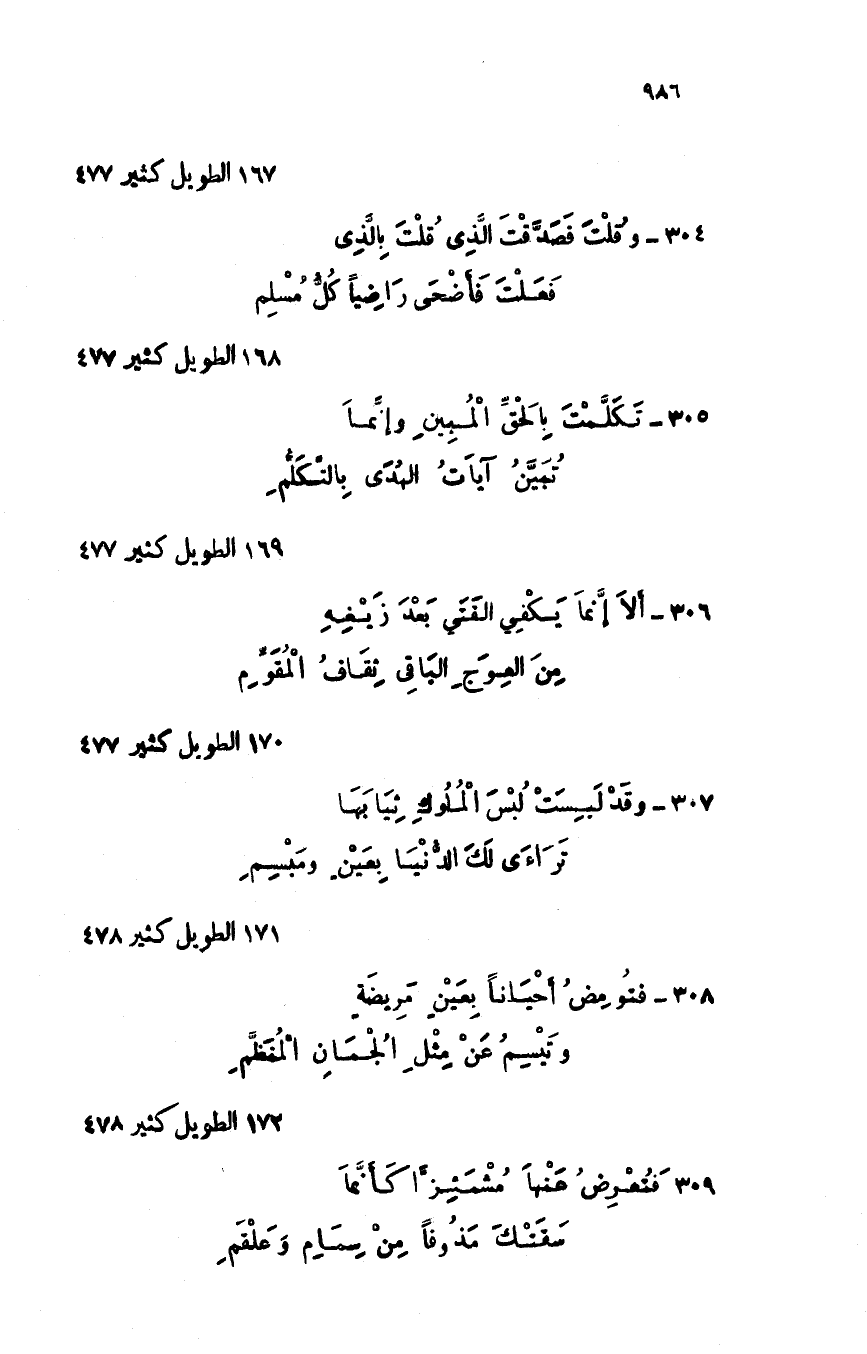 ٩٨٦
١٦٧ الطويل كثير ٤٧٧
٣٠٤ ـ وقُلْتَ فَصَدَّقْتَ الَّذِى قُلْتَ بِالَّذِى
فَعَلْتَ فَأَضْحَى رَاضِياً كُلُّ مُسْلِمِ
١٦٨ الطويل كثير ٤٧٧
٣٠٥ ـ تَكَلَّمْتَ بِالَحْقِّ الْمُبِينِ وإنَّماَ
تُبَيَّنُ آياَتُ الهُدَى بِالتَّكَلُّمِ
١٦٩ الطويل كثير ٤٧٧
٣٠٦ ـ ألاَ إنَّماَ يَكْفِي الفَتَي بَعْدَ زَيْغِهِ
مِنَ العِوَجِ البَاقِى ثِقَافُ الْمُقَوِّمِ
١٧٠ الطويل كثير ٤٧٧
٣٠٧ ـ وقَدْ لَبِسَتْ لُبْسَ الْمُلُوكِ ثِيَابَهَا
تَرَاءَى لَكَ الدُّنْيَا بِعَيْنٍ ومَبْسِمِ
١٧١ الطويل كثير ٤٧٨
٣٠٨ ـ فتُومِضُ أَحْيَاناً بِعَيْنٍ مَرِيضَةٍ
وتَبْسِمُ عَنْ مِثْلِ الُجْمَانِ الْمُنَظَّمِ
١٧٢ الطويل كثير ٤٧٨
٣٠٩ فَتُعْرِضُ عَنْهاَ مُشْمَئِزًّا كَأَنَّماَ
سَقَتْكَ مَذُوفاً مِنْ سِمَامٍ وَعَلْقَمِ